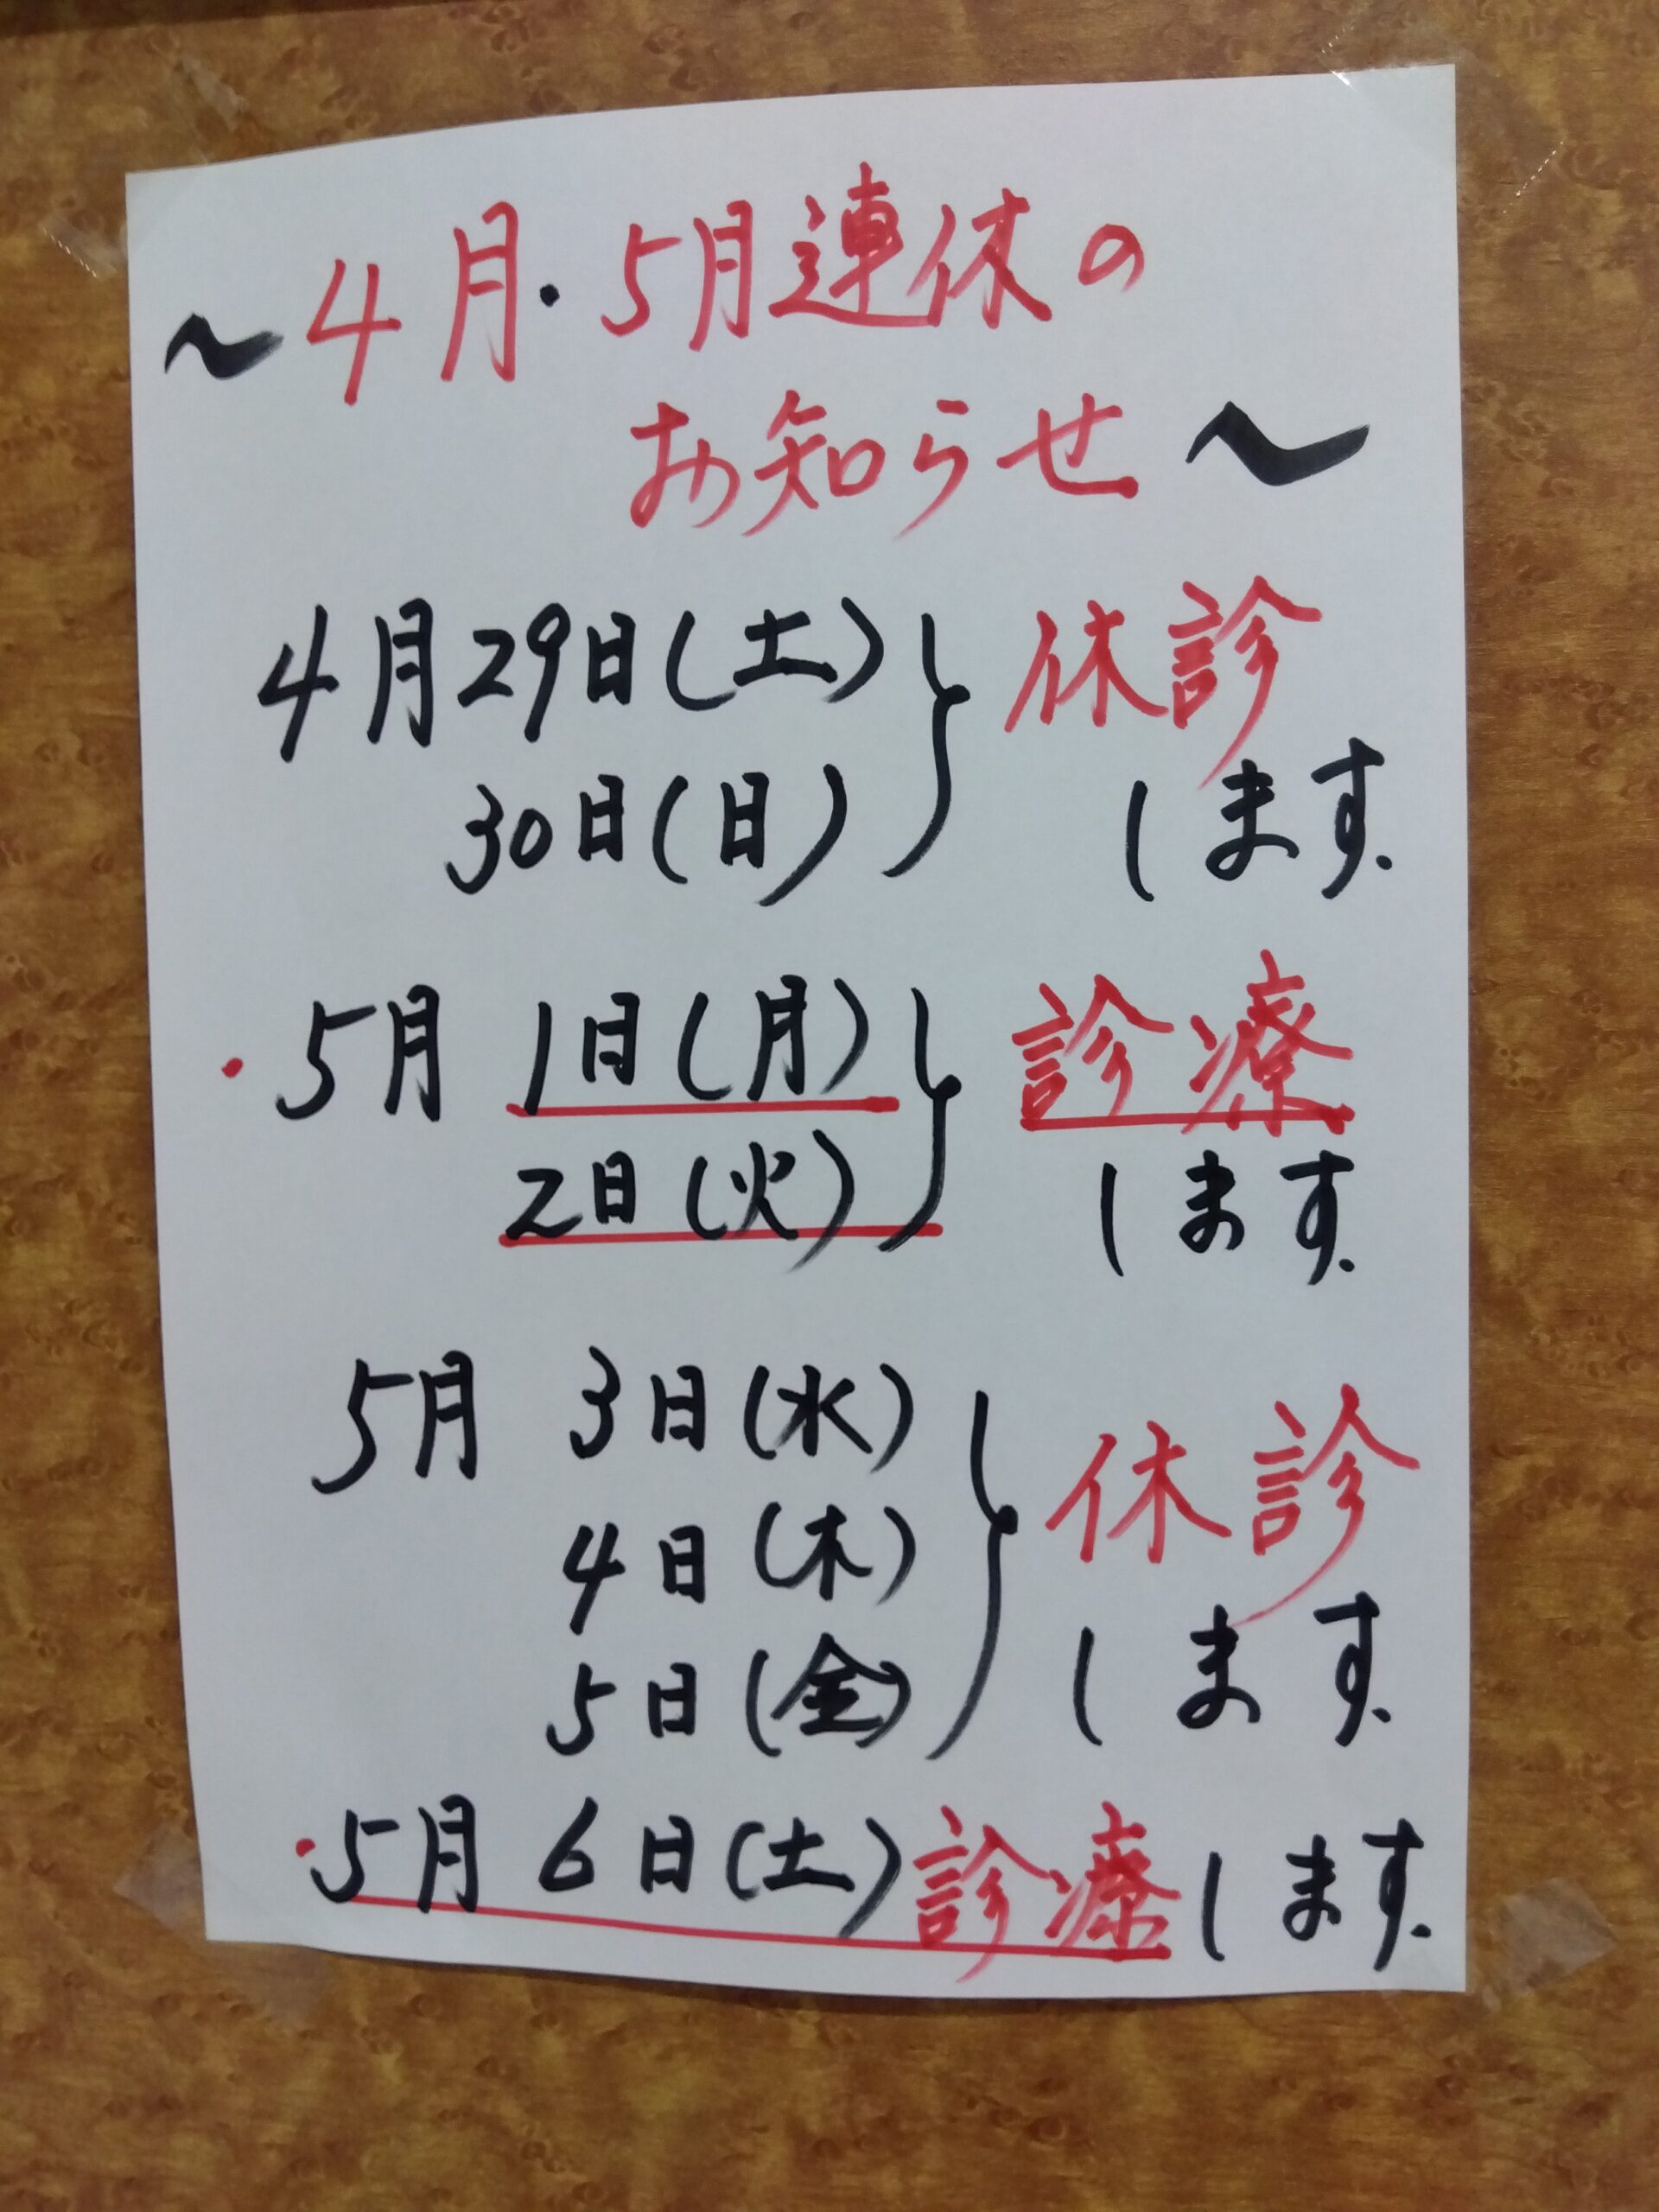 ～4月・5月連休の
お知らせ～
4月29日(土) 休診
30日(日) します.
・5月 1日(月) 診療
2日(火) します.
5月 3日(水) 休診
4日(木)
5日(金) します.
・5月6日(土)診療します.